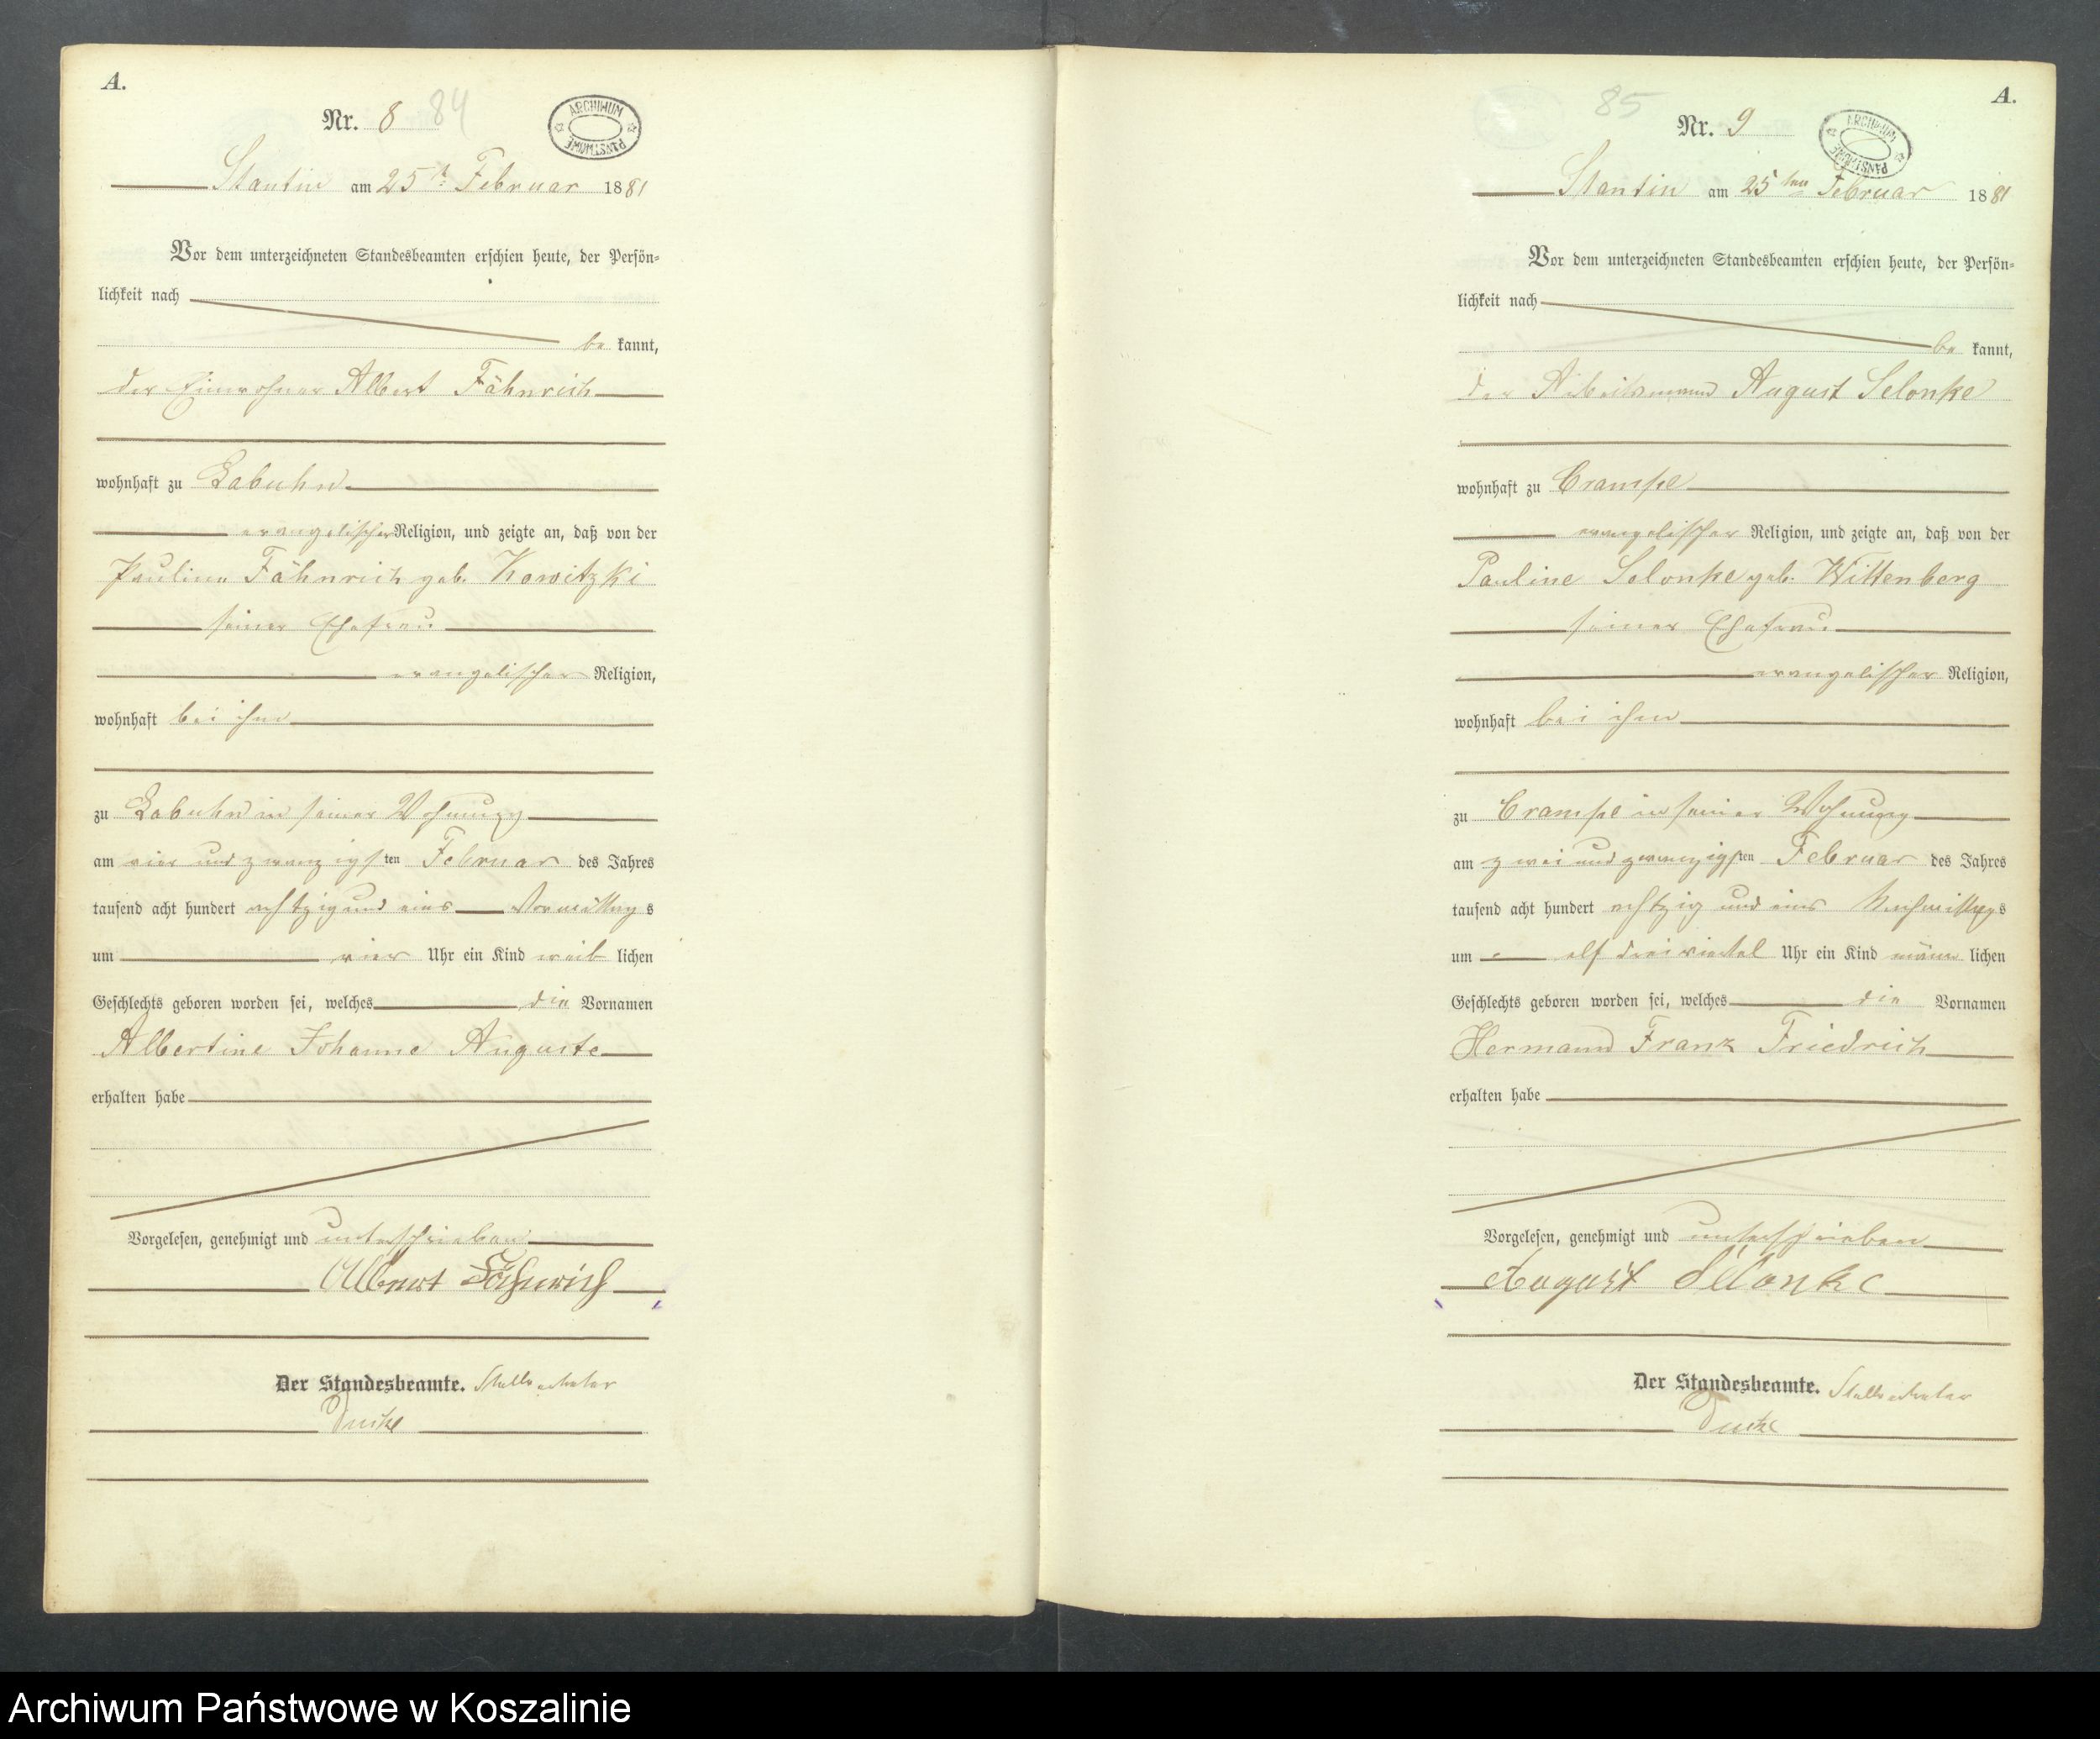 A.
Nr. 8 84
ARCHIWUM PAŃSTWOWE
Stantin am 25t Februar 1881
Vor dem unterzeichneten Standesbeamten erschien heute, der Persön=
lichkeit nach
be kannt,
der Einwohner Albert Fähnrich
wohnhaft zu Labuhn
evangelischer Religion, und zeigte an, daß von der
Pauline Fähnrich geb. Kowitzki
seiner Ehefrau
evangelischer Religion,
wohnhaft bei ihm
zu Labuhn in seiner Wohnung
am vier und zwanzigsten Februar des Jahres
tausend acht hundert achtzig und eins Vormittags
um vier Uhr ein Kind weib lichen
Geschlechts geboren worden sei, welches die Vornamen
Albertine Johanne Auguste
erhalten habe
Vorgelesen, genehmigt und unterschrieben
Albert Fähnrich
Der Standesbeamte. Stellvertreter
A.
85
Nr. 9
ARCHIWUM PAŃSTWOWE
Stantin am 25ten Februar 1881
Vor dem unterzeichneten Standesbeamten erschien heute, der Persön=
lichkeit nach
be kannt,
der Arbeitsmann August Selonke
wohnhaft zu Crampe
evangelischer Religion, und zeigte an, daß von der
Pauline Selonke geb. Wittenberg
seiner Ehefrau
evangelischer Religion,
wohnhaft bei ihm
zu Crampe in seiner Wohnung
am zwei und zwanzigsten Februar des Jahres
tausend acht hundert achtzig und eins Nachmittags
um elf dreiviertel Uhr ein Kind männ lichen
Geschlechts geboren worden sei, welches die Vornamen
Hermann Franz Friedrich
erhalten habe
Vorgelesen, genehmigt und unterschrieben
August Selonke
Der Standesbeamte. Stellvertreter
Archiwum Państwowe w Koszalinie